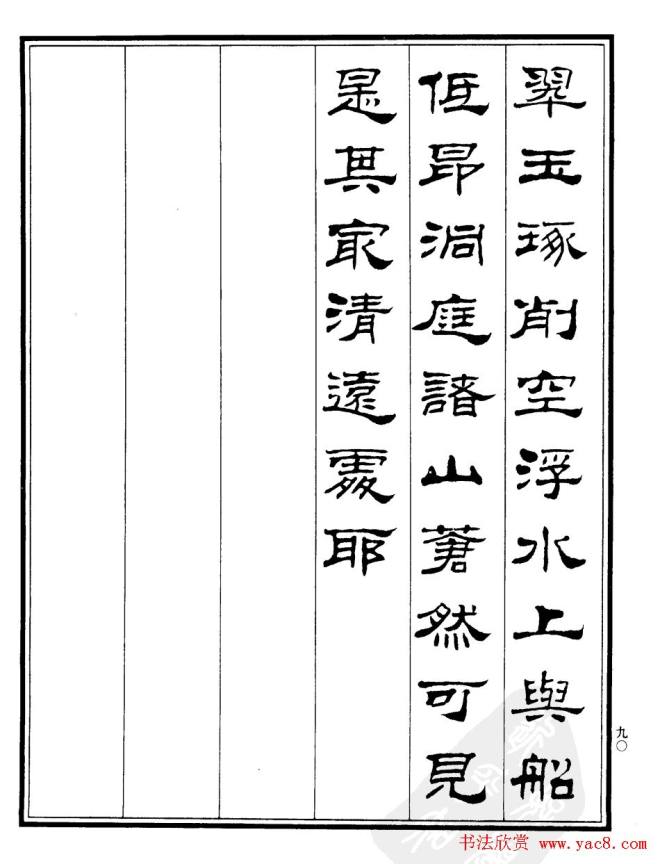 翠玉琢削空浮水上與船
低昂洞庭諸山蒼然可見
是其最清遠處耶
九〇
书法欣赏 www.yac8.com